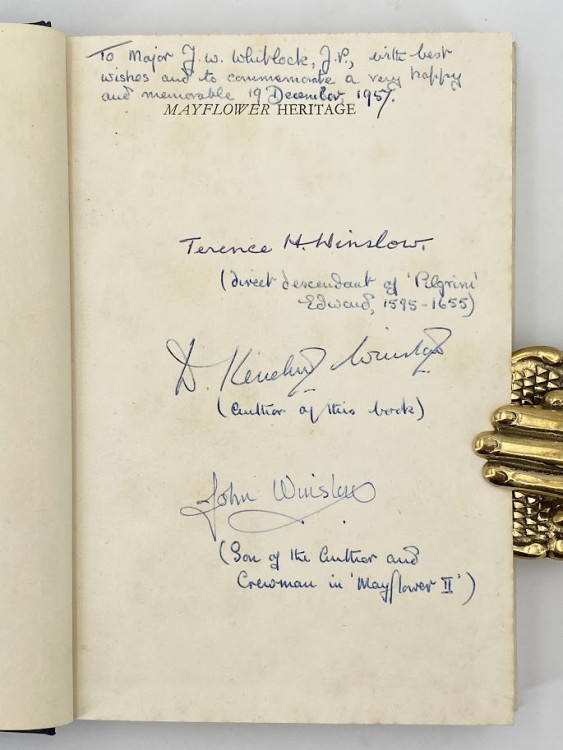 To Major J. W. Whitlock, J.P., with best
wishes and to commemorate a very happy
and memorable 19 December, 1957.
MAYFLOWER HERITAGE
Terence H. Winslow.
(direct descendant of 'Pilgrim'
Edward, 1595-1655)
D. Kenelm Winslow
(Author of this book)
John Winslow
(Son of the Author and
Crewman in 'Mayflower II')